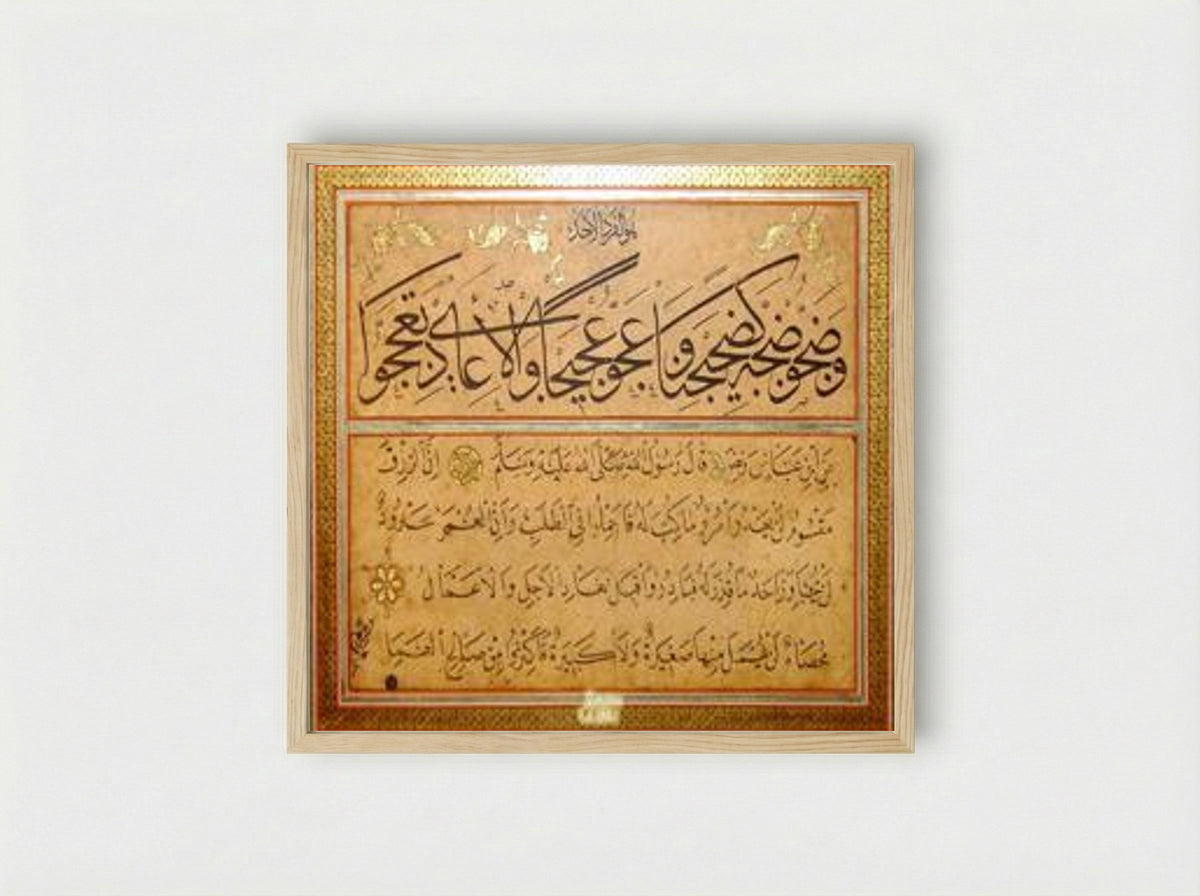 هو الفرد الاحد
وضجو ضجة كضجيجنا و عجو عجيجا والاعادى
عن ابن عباس قال رسول الله صلى الله عليه وسلم ان الرزق
مقسوم لن يعدو امرؤ ما كتب له فاجملوا في الطلب وان العمر محدود
لن يجاوز احد ما قدر له فبادروا قبل نفاد الاجل والاعمال
محصاة لن يهمل منها صغيرة ولا كبيرة فاكثروا من صالح